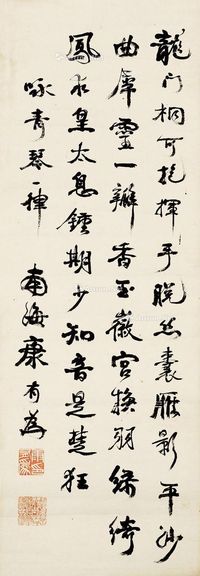 龍門桐可抱揮手脫囊雁影平沙
曲犀靈一瓣香玉徽宮換羽綠綺
鳳求皇太息鍾期少知音是楚狂
詠青琴一律 南海康有為